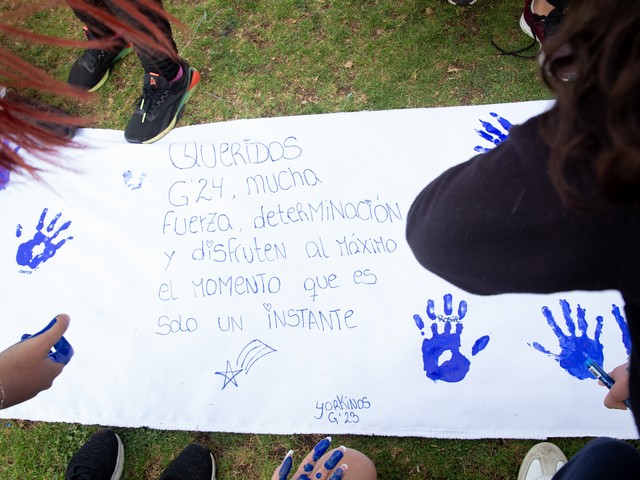 QUERIDOS
G'24, mucha
fuerza, deterMINACIÓN
y disfruten al Máximo
el MOMENTO que es
SOLO UN INSTANTE
YORKINOS
G'23